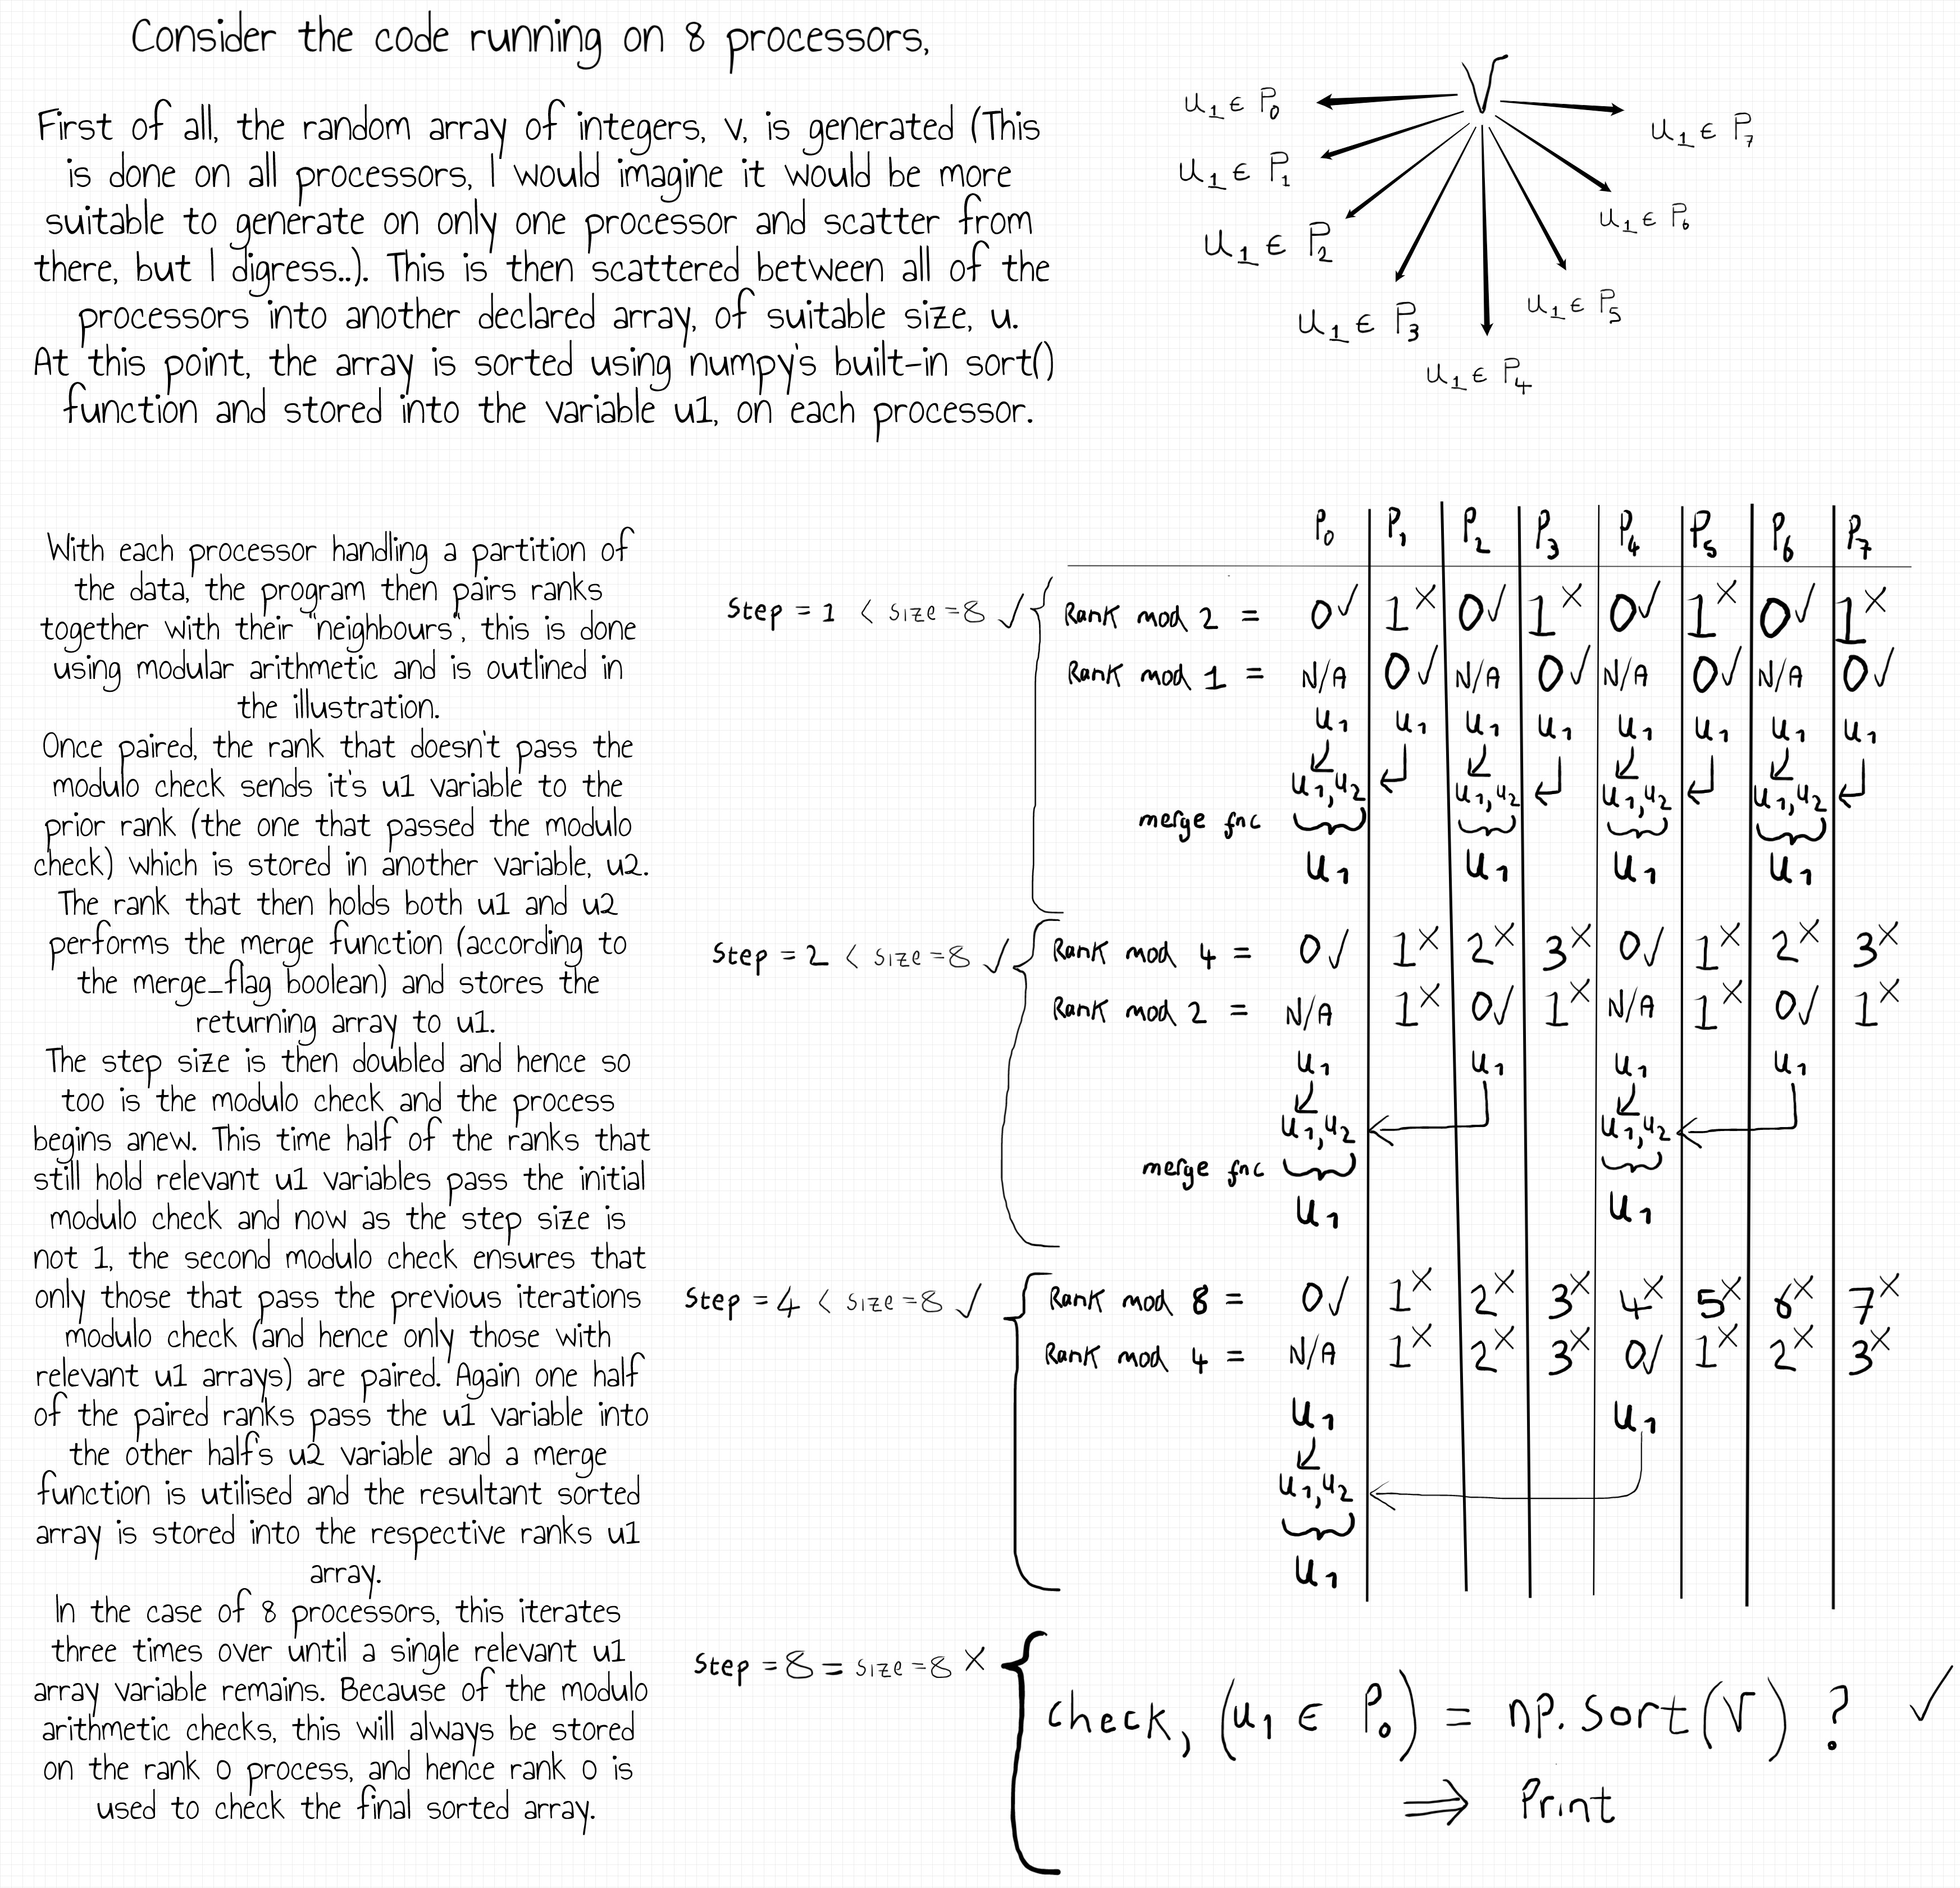 Consider the code running on 8 processors,
First of all, the random array of integers, v, is generated (This
is done on all processors, I would imagine it would be more
suitable to generate on only one processor and scatter from
there, but I digress..). This is then scattered between all of the
processors into another declared array, of suitable size, u.
At this point, the array is sorted using numpy's built-in sort()
function and stored into the variable u1, on each processor.
V
u₁ ∈ P₀
u₁ ∈ P₁
u₁ ∈ P₂
u₁ ∈ P₃
u₁ ∈ P₄
u₁ ∈ P₅
u₁ ∈ P₆
u₁ ∈ P₇
With each processor handling a partition of
the data, the program then pairs ranks
together with their "neighbours", this is done
using modular arithmetic and is outlined in
the illustration.
Once paired, the rank that doesn't pass the
modulo check sends it's u1 variable to the
prior rank (the one that passed the modulo
check) which is stored in another variable, u2.
The rank that then holds both u1 and u2
performs the merge function (according to
the merge_flag boolean) and stores the
returning array to u1.
The step size is then doubled and hence so
too is the modulo check and the process
begins anew. This time half of the ranks that
still hold relevant u1 variables pass the initial
modulo check and now as the step size is
not 1, the second modulo check ensures that
only those that pass the previous iterations
modulo check (and hence only those with
relevant u1 arrays) are paired. Again one half
of the paired ranks pass the u1 variable into
the other half's u2 variable and a merge
function is utilised and the resultant sorted
array is stored into the respective ranks u1
array.
In the case of 8 processors, this iterates
three times over until a single relevant u1
array variable remains. Because of the modulo
arithmetic checks, this will always be stored
on the rank 0 process, and hence rank 0 is
used to check the final sorted array.
P₀ P₁ P₂ P₃ P₄ P₅ P₆ P₇
Step = 1 < size = 8 ✓
Rank mod 2 = 0✓ 1× 0✓ 1× 0✓ 1× 0✓ 1×
Rank mod 1 = N/A 0✓ N/A 0✓ N/A 0✓ N/A 0✓
u₁ u₁ u₁ u₁ u₁ u₁ u₁ u₁
u₁,u₂ u₁,u₂ u₁,u₂ u₁,u₂
merge fnc
u₁ u₁ u₁ u₁
Step = 2 < size = 8 ✓
Rank mod 4 = 0✓ 1× 2× 3× 0✓ 1× 2× 3×
Rank mod 2 = N/A 1× 0✓ 1× N/A 1× 0✓ 1×
u₁ u₁ u₁ u₁
u₁,u₂ u₁,u₂
merge fnc
u₁ u₁
Step = 4 < size = 8 ✓
Rank mod 8 = 0✓ 1× 2× 3× 4× 5× 6× 7×
Rank mod 4 = N/A 1× 2× 3× 0✓ 1× 2× 3×
u₁ u₁
u₁,u₂
u₁
Step = 8 = size = 8 ×
check, (u₁ ∈ P₀) = np.sort(V) ? ✓
⇒ Print